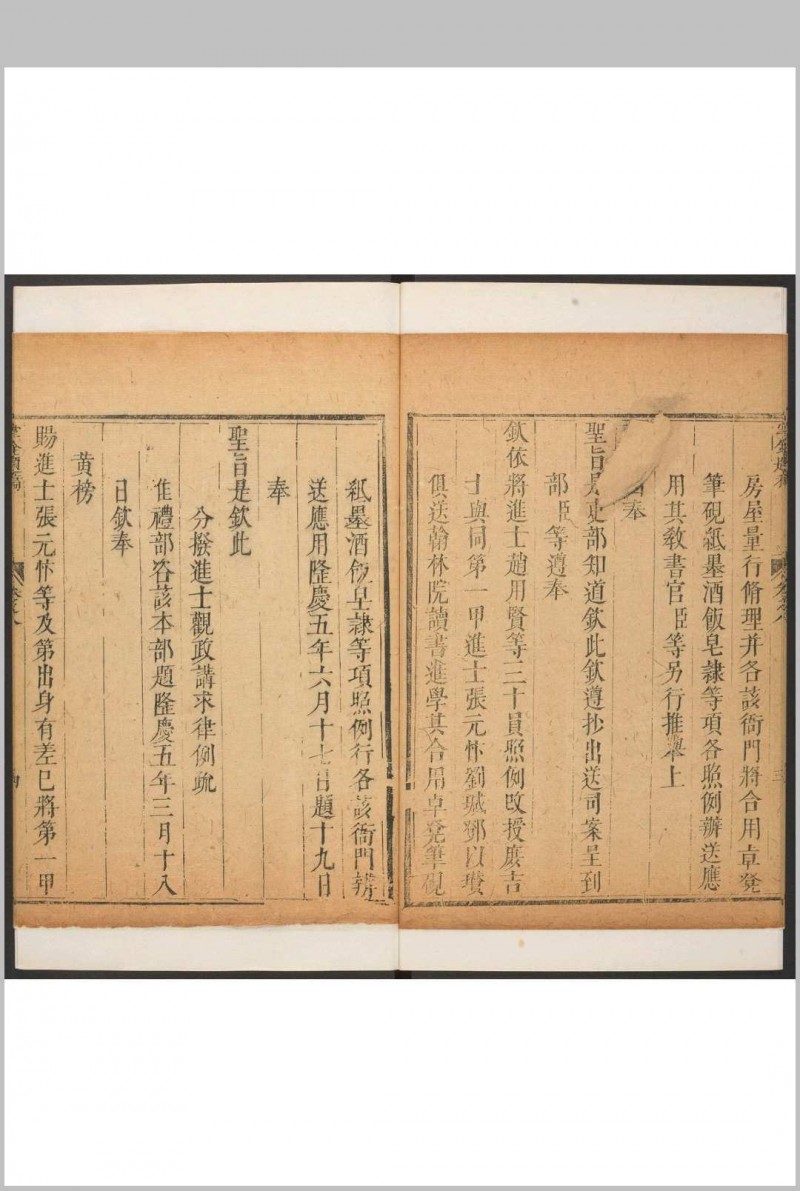 房屋量行脩理并各該衙門將合用卓凳
筆硯紙墨酒飯皂隸等項各照例辦送應
用其敎書官臣等另行推舉上
奉
聖旨是吏部知道欽此欽遵抄出送司案呈到
部臣等遵奉
欽依將進士趙用賢等三十員照例改授庶吉
士與同第一甲進士張元忭劉瑊鄧以瓚
俱送翰林院讀書進學其合用卓凳筆硯
紙墨酒飯皂隸等項照例行各該衙門辨
送應用隆慶五年六月十七日題十九日
奉
聖旨是欽此
分撥進士觀政講求律例疏
准禮部咨該本部題隆慶五年三月十八
日欽奉
黃榜
賜進士張元忭等及第出身有差已將第一甲
卷之八
三
卷之八
四